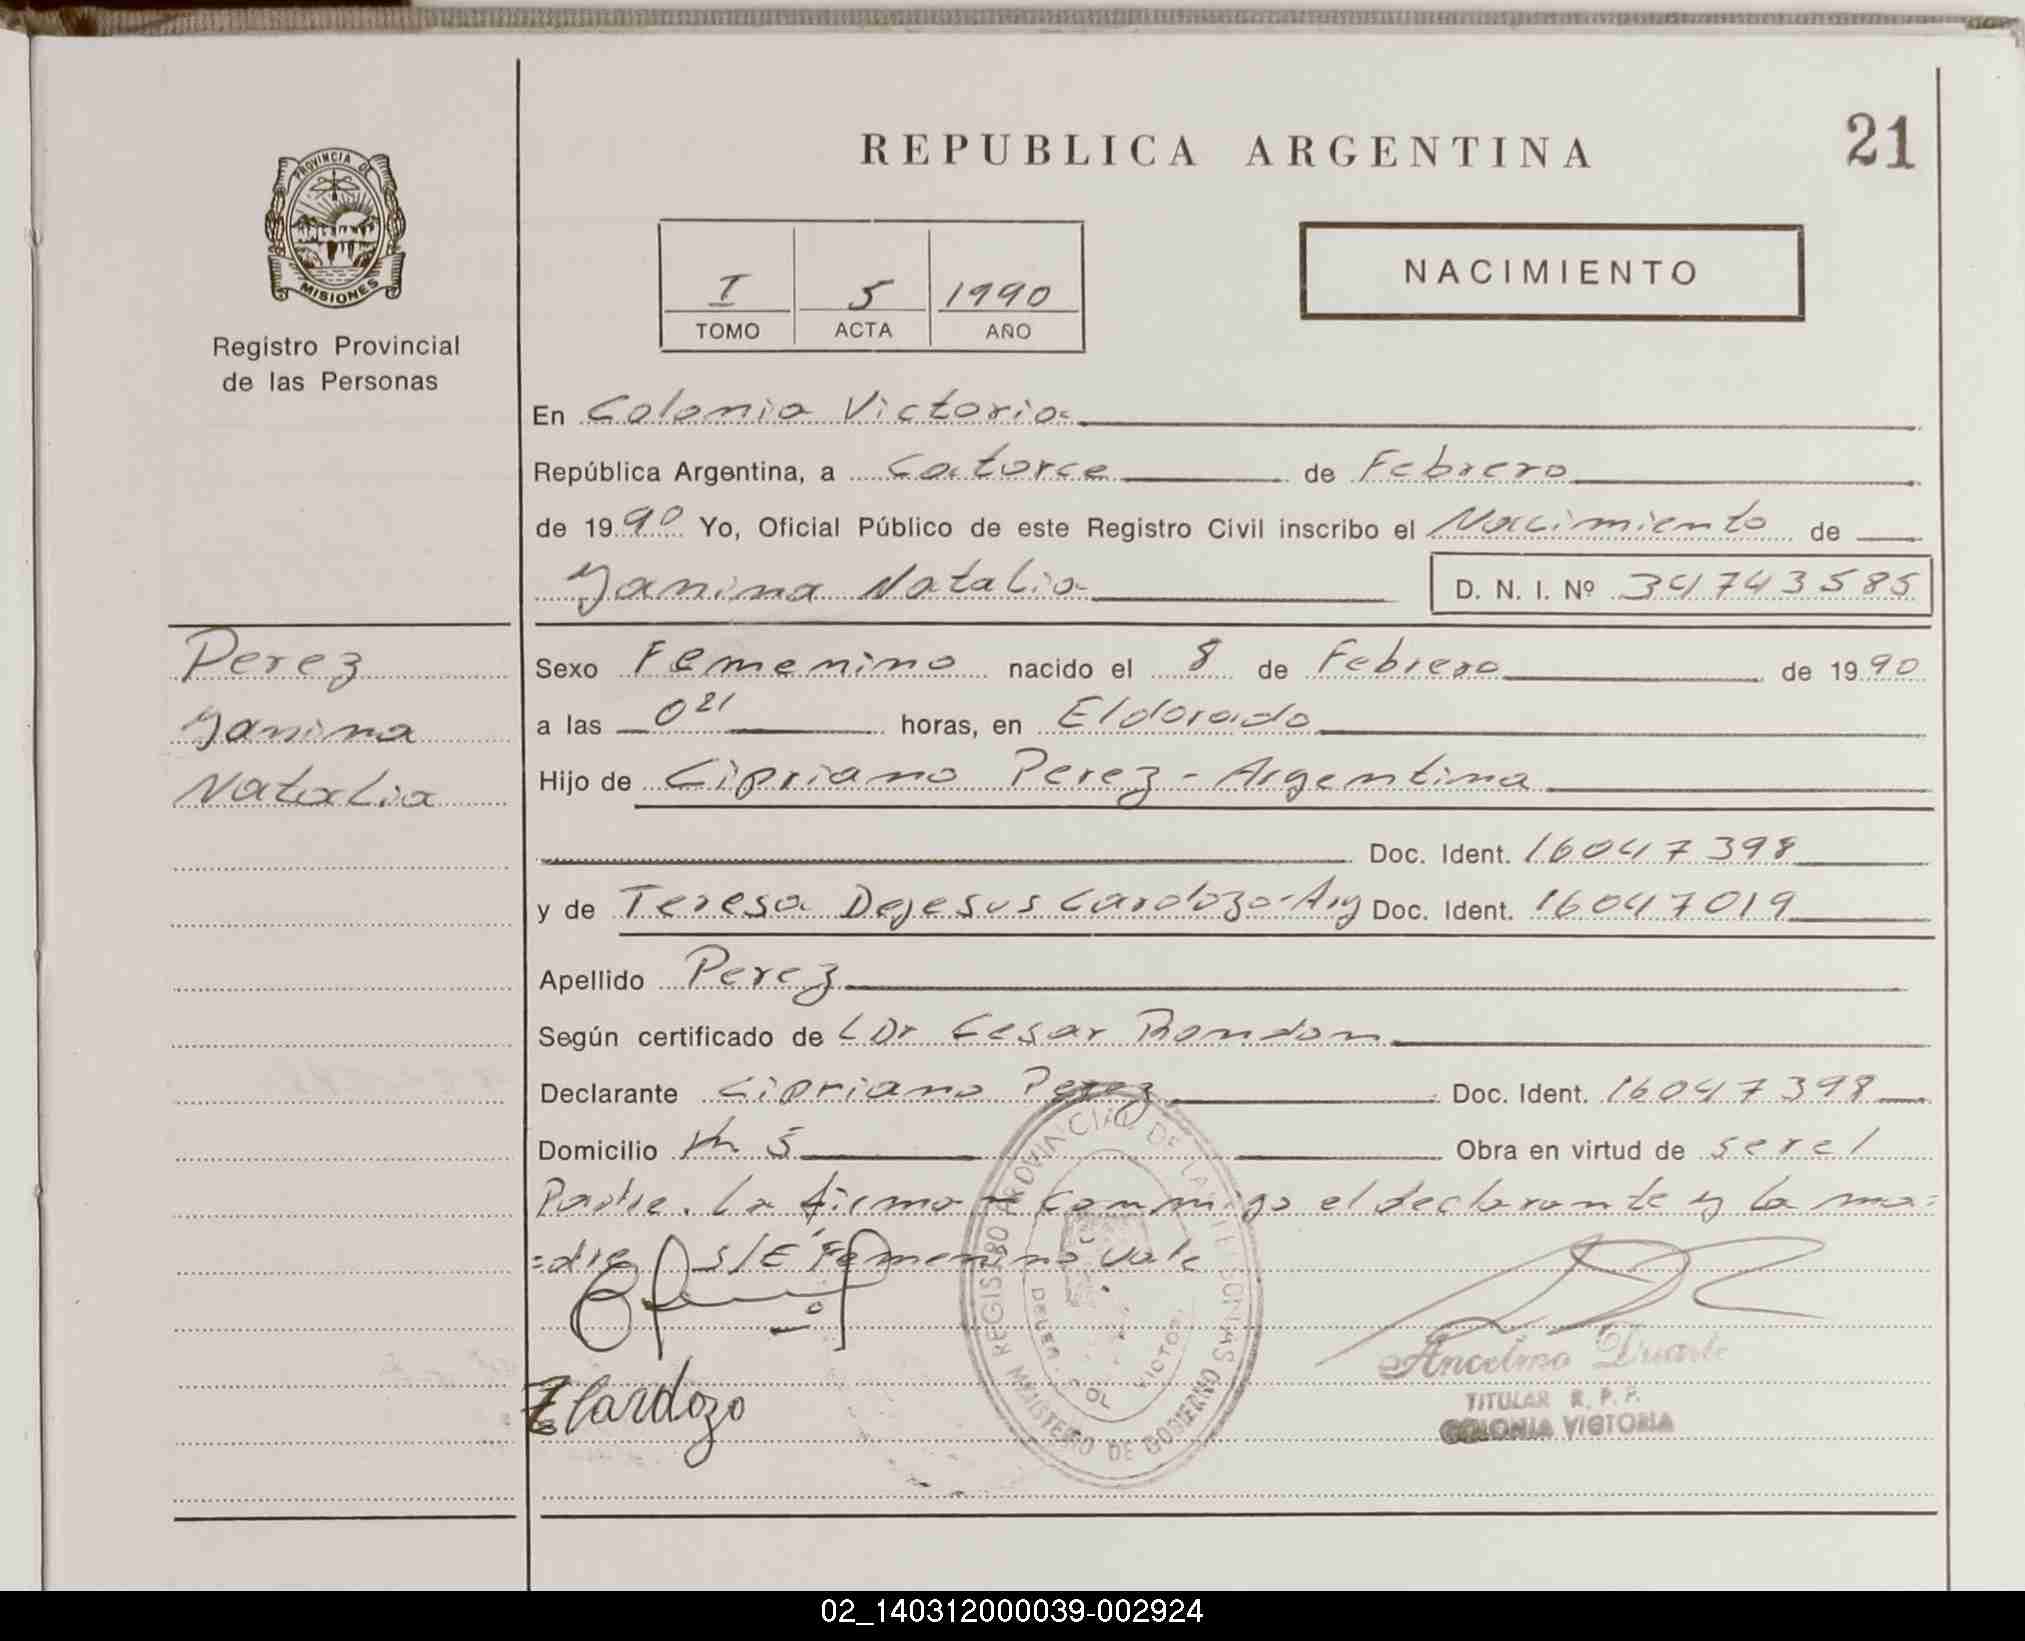 REPUBLICA ARGENTINA
21
PROVINCIA DE
MISIONES
Registro Provincial
de las Personas
I 5 1990
TOMO ACTA AÑO
NACIMIENTO
En Colonia Victoria
República Argentina, a Catorce de Febrero
de 1990 Yo, Oficial Público de este Registro Civil inscribo el Nacimiento de
Yanina Natalia D. N. I. Nº 34743585
Perez
Yanina
Natalia
Sexo Femenino nacido el 8 de Febrero de 1990
a las 0 21 horas, en Eldorado
Hijo de Cipriano Perez - Argentina
Doc. Ident. 16047398
y de Teresa Dejesus Cardozo-Arg Doc. Ident. 16047019
Apellido Perez
Según certificado de Dr Cesar Rondon
Declarante Cipriano Perez Doc. Ident. 16047398
Domicilio Km 5 Obra en virtud de ser el
Padre. La firman conmigo el declarante y la ma=
=dre S/E Femenino vale
REGISTRO PROVINCIAL DE LAS PERSONAS
MINISTERIO DE GOBIERNO
Cardozo
Ancelmo Duarte
TITULAR R. P. P.
COLONIA VICTORIA
02_140312000039-002924